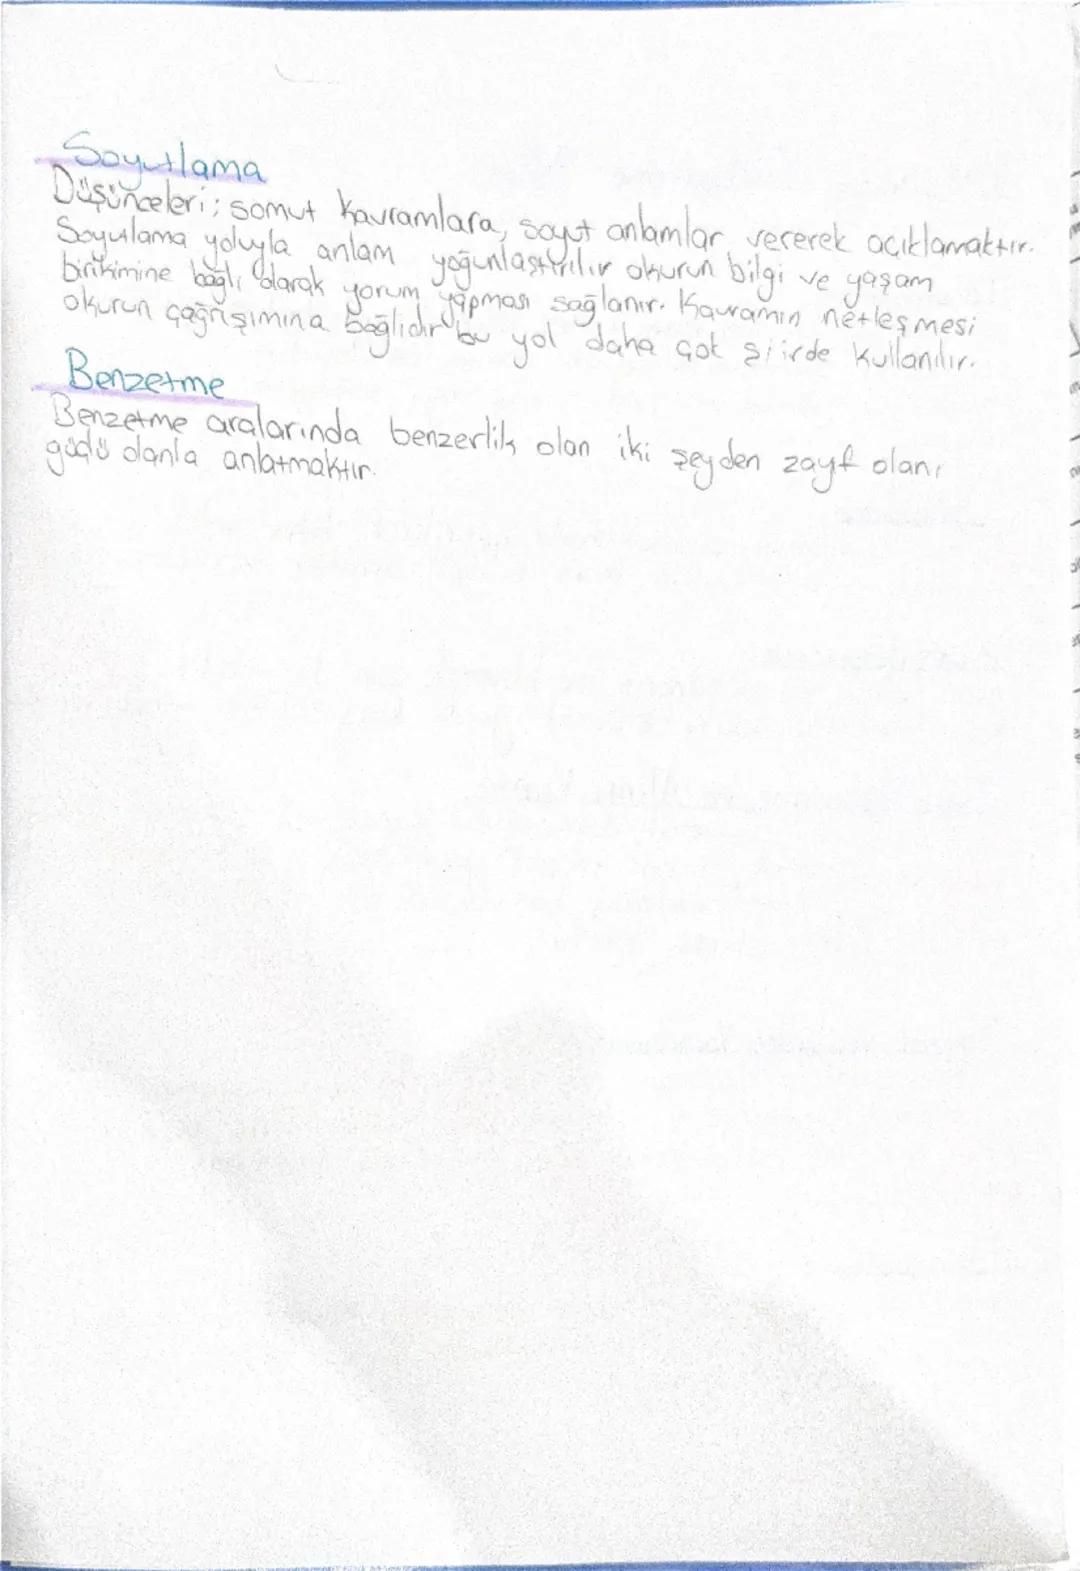 Soyutlama
Düşünceleri; somut kavramlara, soyut anlamlar vererek açıklamaktır.
Soyutlama yoluyla anlam yoğunlaştırılır okurun bilgi ve yaşam
birikimine bağlı olarak yorum yapması sağlanır. Kavramın netleşmesi
okurun çağrışımına bağlıdır bu yol daha çok şiirde kullanılır.
Benzetme
Benzetme aralarında benzerlik olan iki şeyden zayıf olanı
güçlü olanla anlatmaktır.